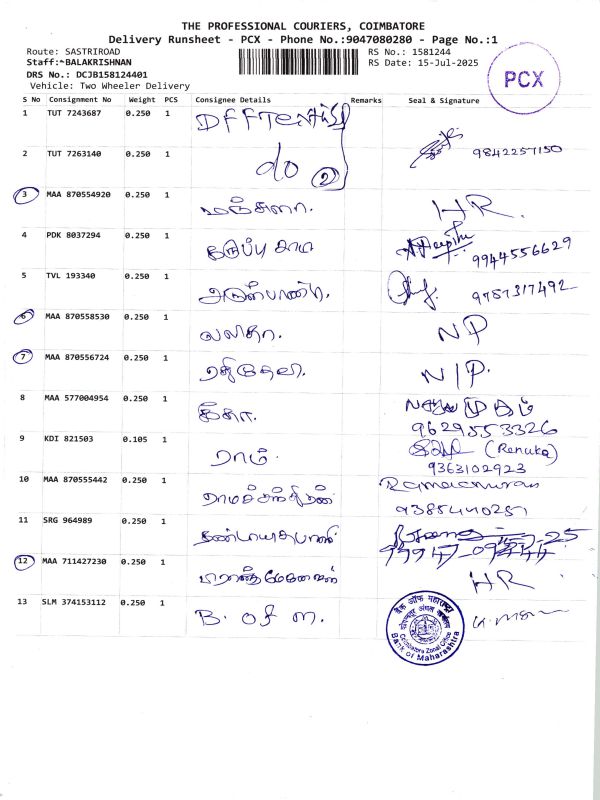 THE PROFESSIONAL COURIERS, COIMBATORE
Delivery Runsheet - PCX - Phone No.:9047080280 - Page No.:1
Route: SASTRIROAD
RS No.: 1581244
Staff:*BALAKRISHNAN
RS Date: 15-Jul-2025
DRS No.: DCJB158124401
Vehicle: Two Wheeler Delivery
PCX
S No Consignment No Weight PCS Consignee Details Remarks Seal & Signature
1 TUT 7243687 0.250 1
2 TUT 7263140 0.250 1 do 2 9842257150
3 MAA 870554920 0.250 1 மஞ்சுளா. HR.
4 PDK 8037294 0.250 1 கருப்பு சாமி 9944556629
5 TVL 193340 0.250 1 அருள்பாண்டி. 9787317492
6 MAA 870558530 0.250 1 லலிதா. NP
7 MAA 870556724 0.250 1 N/P.
8 MAA 577004954 0.250 1 கீதா.
9629553326
9 KDI 821503 0.105 1 ராம். (Renuka)
9363102923
10 MAA 870555442 0.250 1 ராமச்சந்திரன்
9385440251
11 SRG 964989 0.250 1
12 MAA 711427230 0.250 1 HR
13 SLM 374153112 0.250 1 B. of m.
बैंक ऑफ महाराष्ट्र
Coimbatore Zonal Office
Bank of Maharashtra